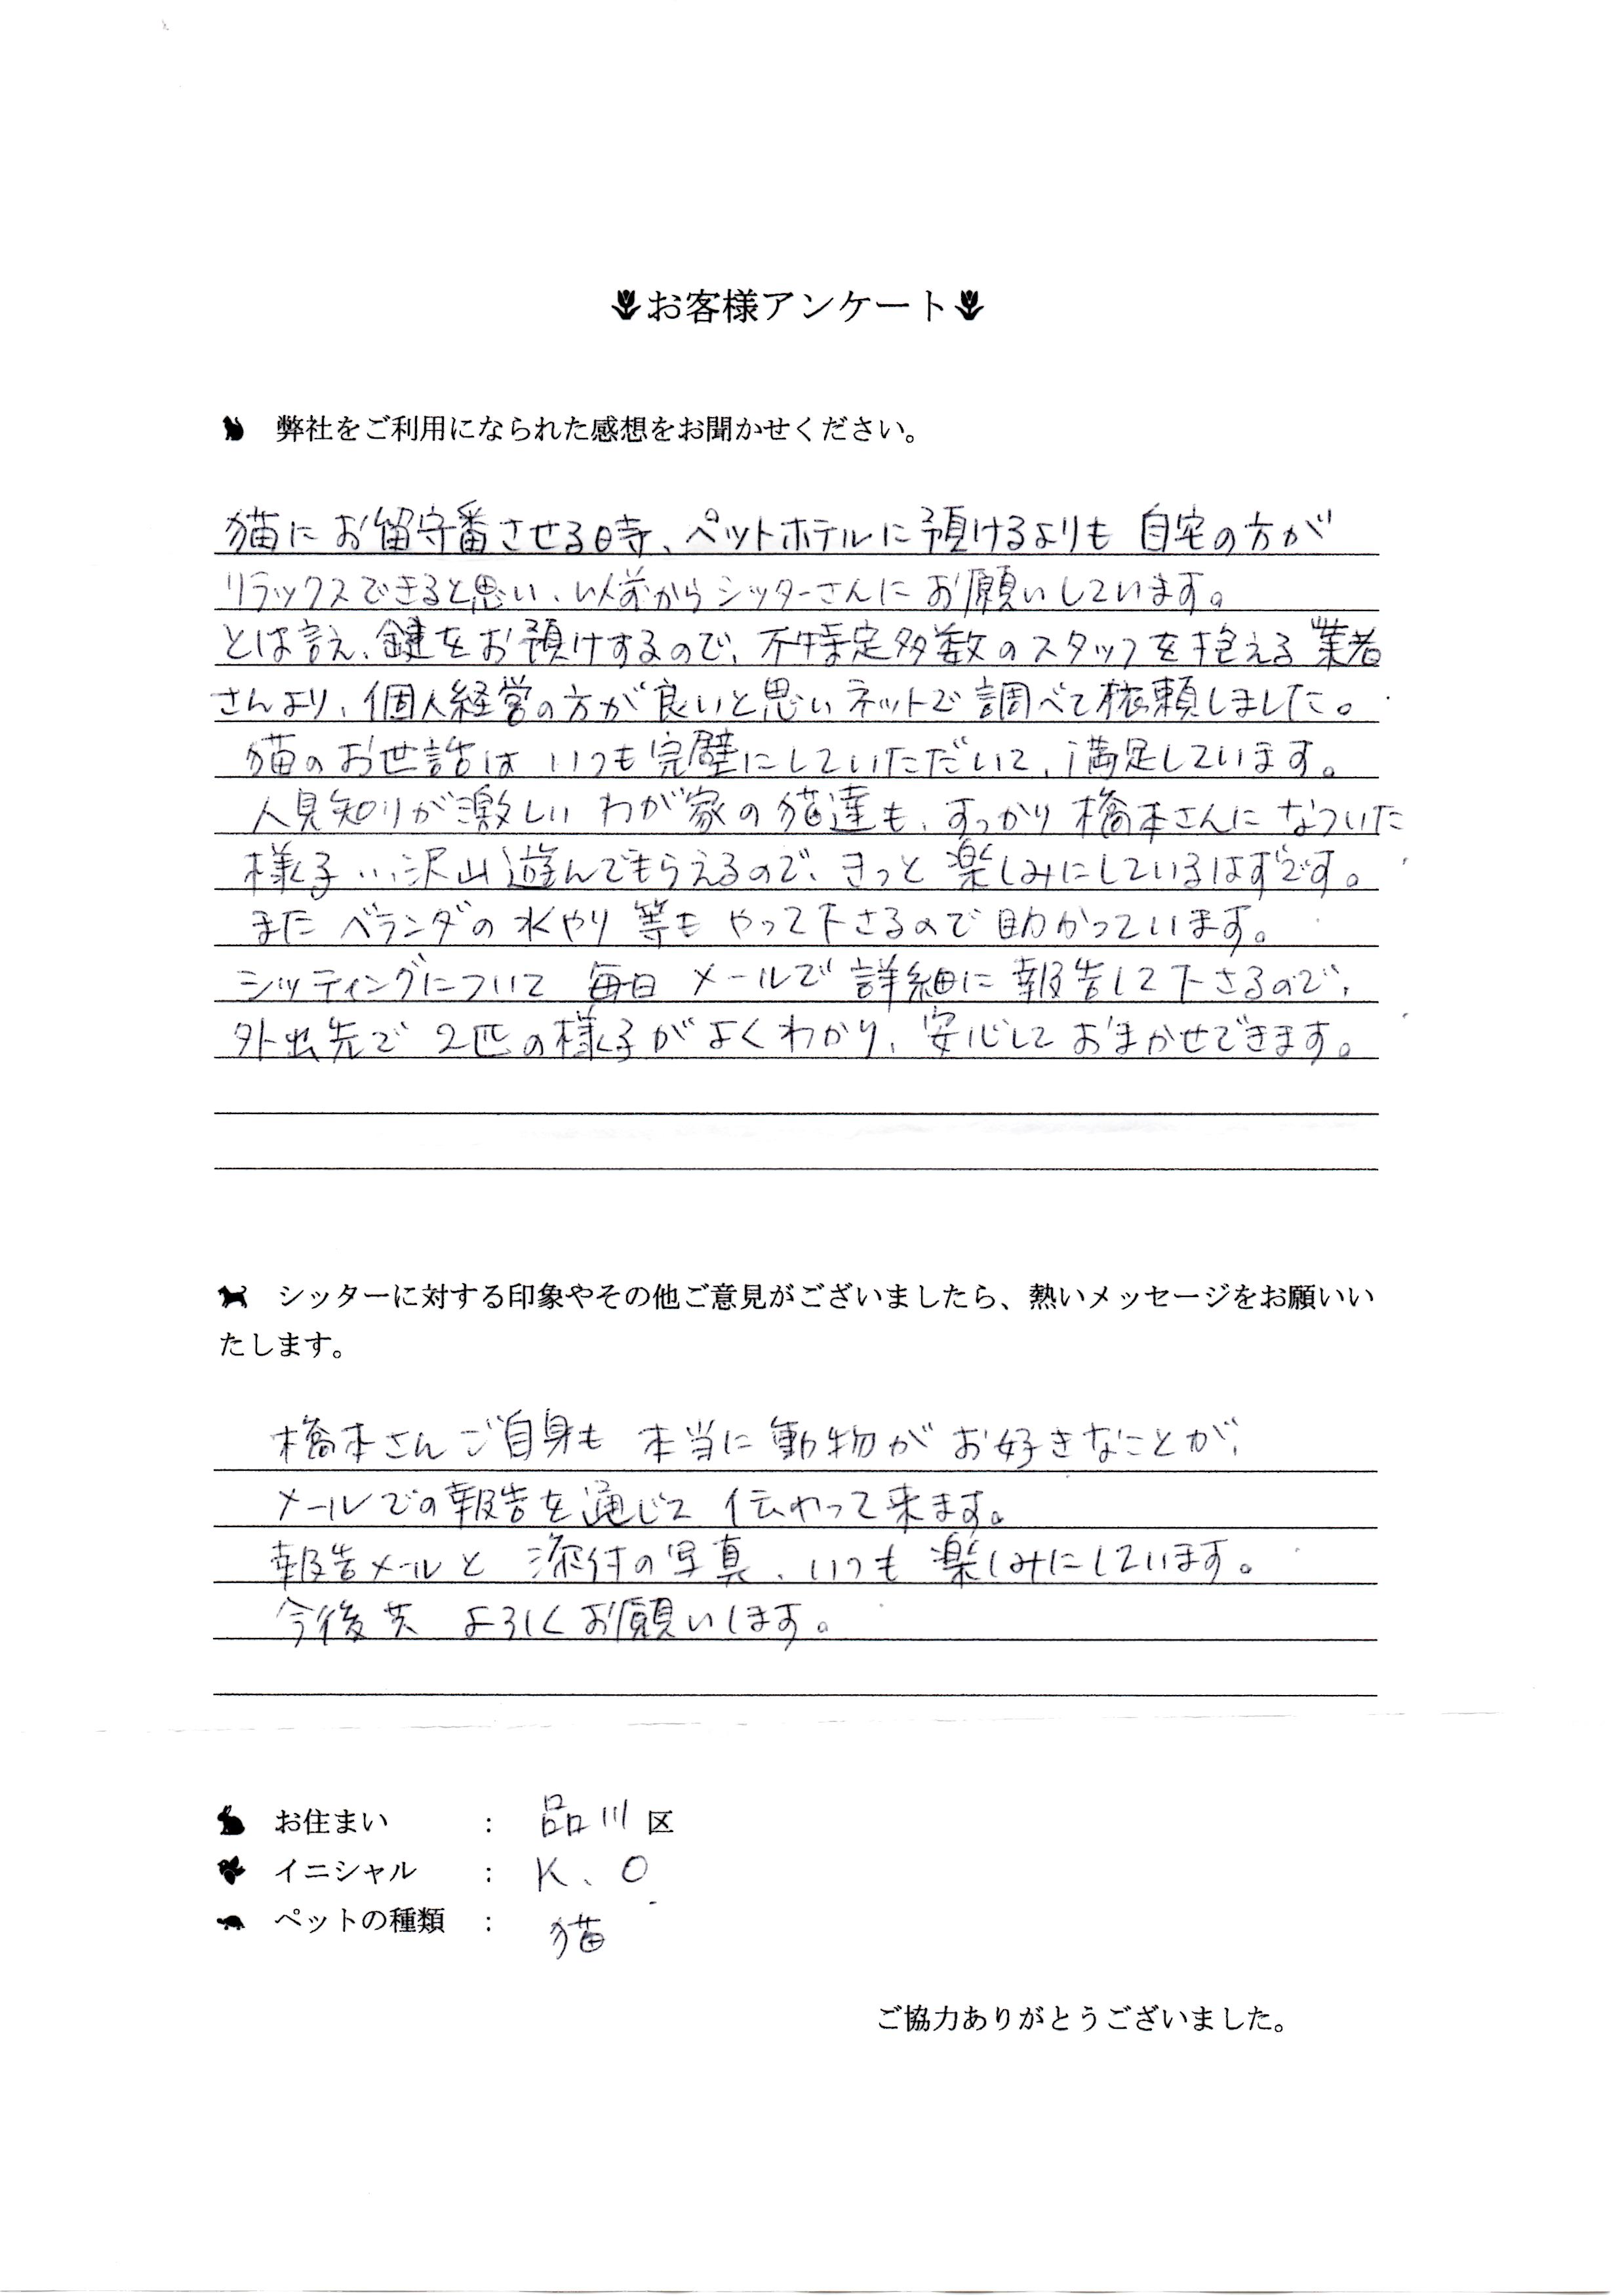 お客様アンケート
弊社をご利用になられた感想をお聞かせください。
猫にお留守番させる時、ペットホテルに預けるよりも 自宅の方が
リラックスできると思い、以前からシッターさんにお願いしています。
とは言え、鍵をお預けするので、不特定多数のスタッフを抱える業者
さんより、個人経営の方が良いと思いネットで調べて依頼しました。
猫のお世話は いつも完璧にしていただいて、満足しています。
人見知りが激しい わが家の猫達も、すっかり橋本さんになついた
様子…沢山遊んでもらえるので、きっと楽しみにしているはずです。
また ベランダの水やり等も やって下さるので助かっています。
シッティングについて 毎日 メールで詳細に報告して下さるので、
外出先で 2匹の様子がよくわかり、安心しておまかせできます。
シッターに対する印象やその他ご意見がございましたら、熱いメッセージをお願いい
たします。
橋本さんご自身も 本当に動物がお好きなことが、
メールでの報告を通じて 伝わって来ます。
報告メールと 添付の写真、いつも楽しみにしています。
今後共 よろしくお願いします。
お住まい : 品川区
イニシャル : K、O
ペットの種類 : 猫
ご協力ありがとうございました。